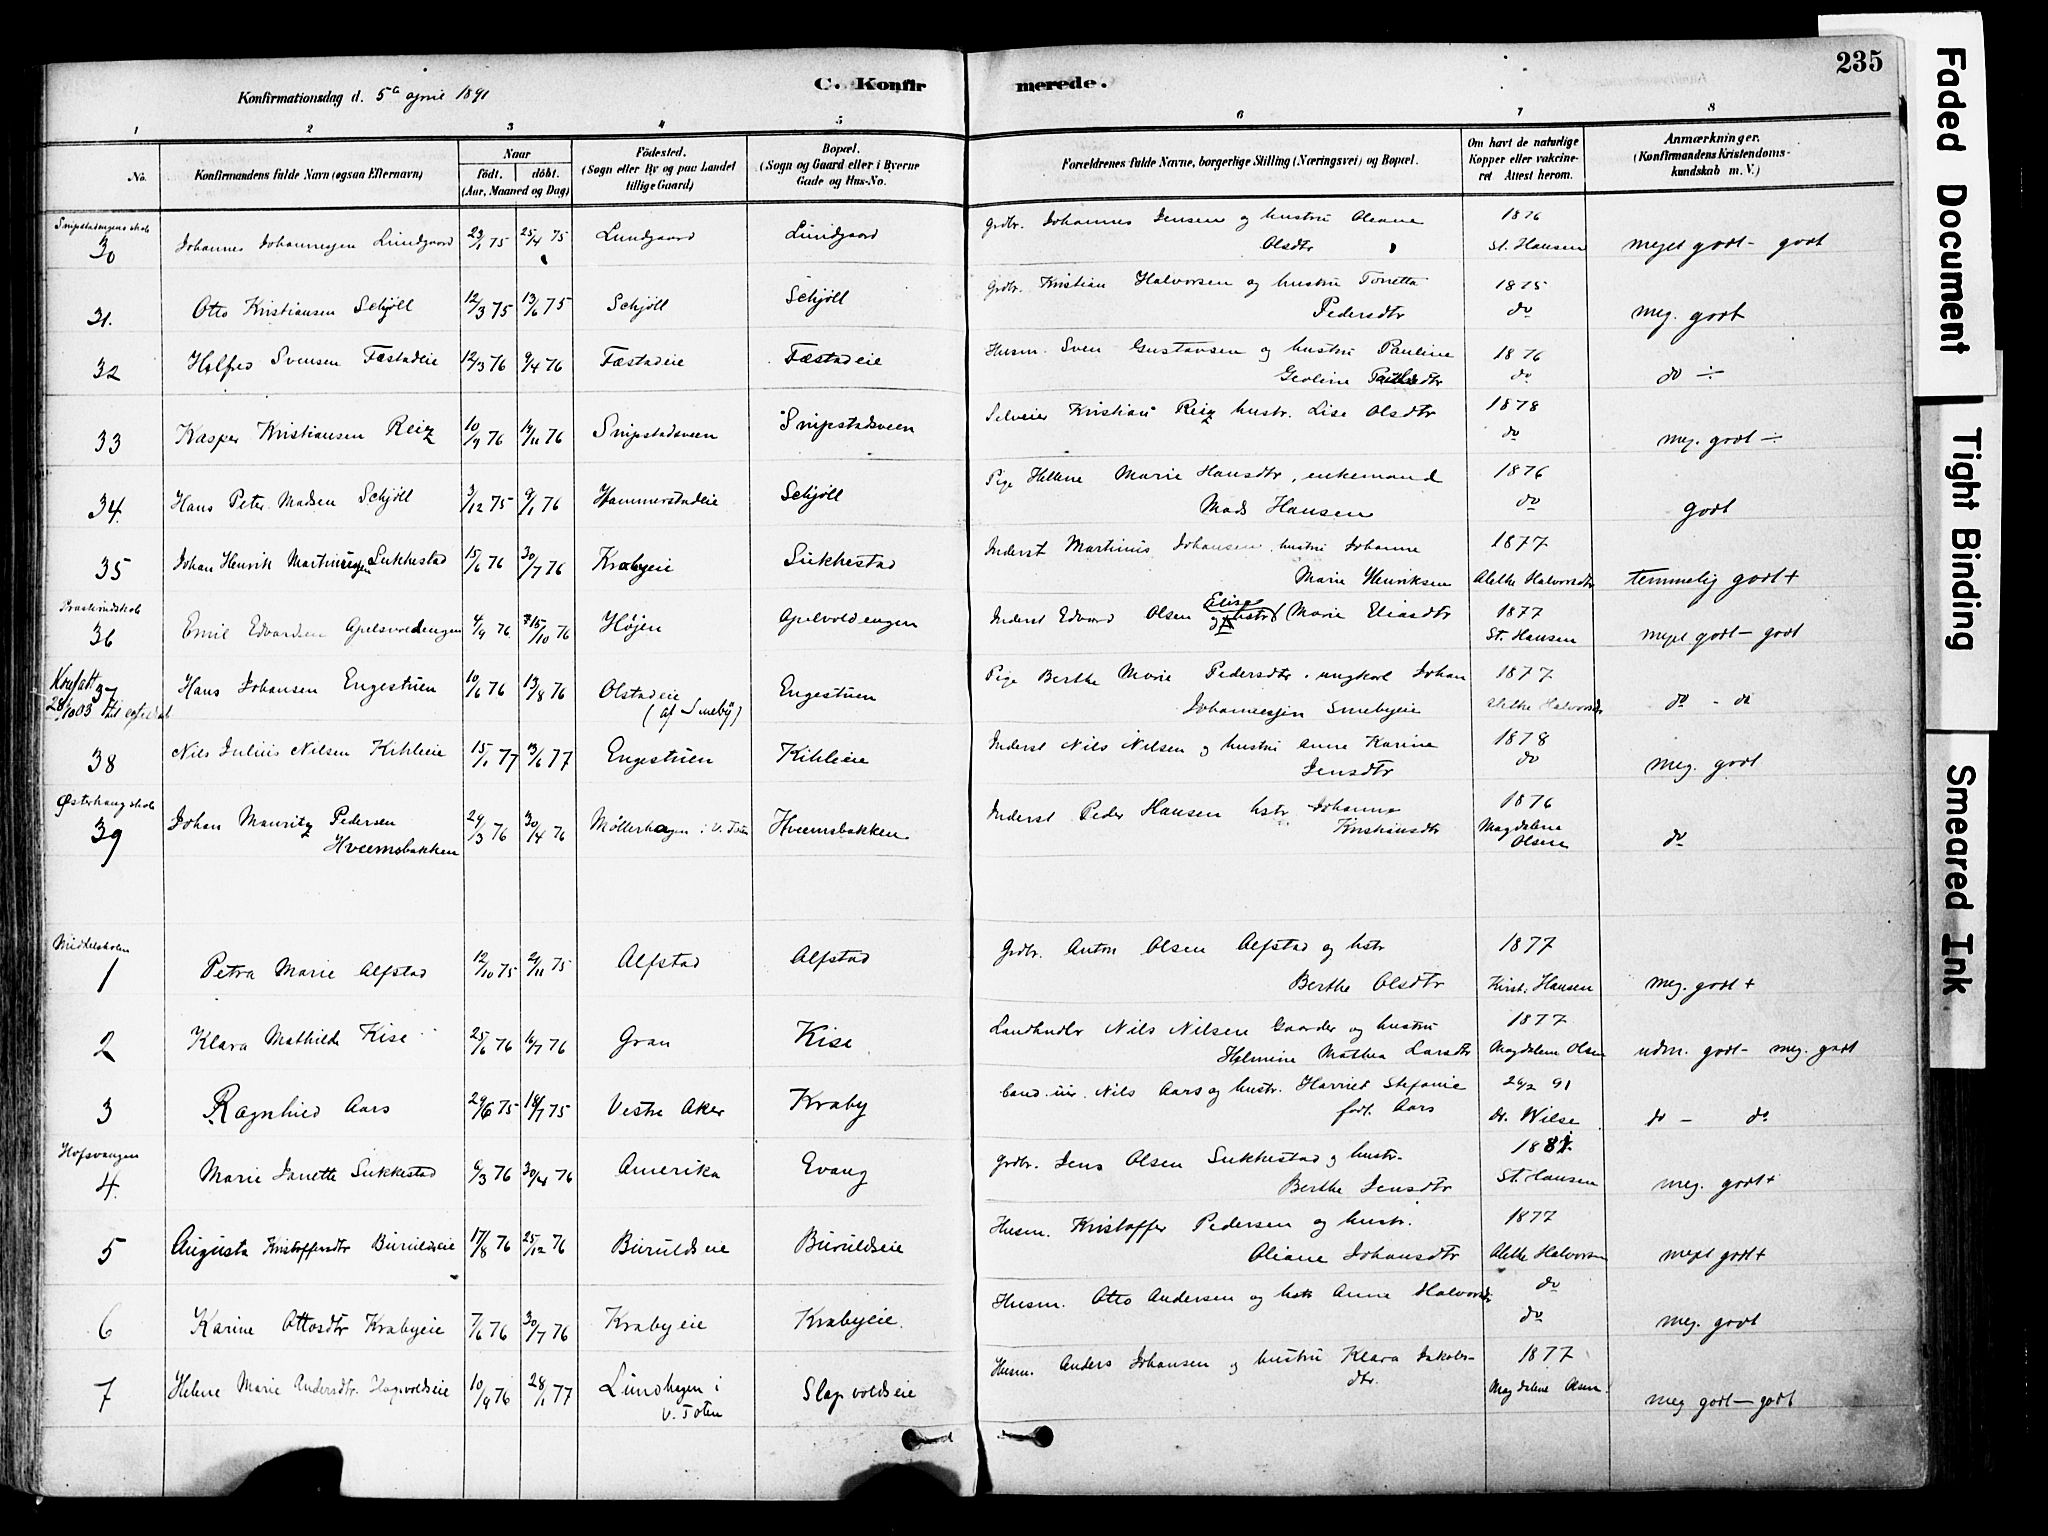 235
Konfirmationsdag d. 5te april 1891
C. Konfir merede.
1 2 3 4 5 6 7 8
No.
Konfirmandens fulde Navn (ogsaa Efternavn)
Naar
födt. döbt.
(Aar, Maaned og Dag)
Födested.
(Sogn eller By og paa Landet
tillige Gaard)
Bopæl.
(Sogn og Gaard eller i Byerne
Gade og Hus-No.
Forældrenes fulde Navne, borgerlige Stilling (Næringsvei) og Bopæl.
Om havt de naturlige
Kopper eller vakcine-
ret Attest herom.
Anmærkninger.
(Konfirmandens Kristendoms-
kundskab m. V.)
30 Johannes Johannesen Lundgaard 23/1 75 25/4 75 Lundgaard Lundgaard Grdbr. Johannes Jensen og hustru Oleane 1876
Olsdtr St. Hansen meget godt - godt
31. Otto Kristiansen Schjöll 12/3 75 13/6 75 Schjöll Schjöll Grdbr. Kristian Halvorsen og hustru Tonetta 1875
Pedersdtr do meg. godt
32 Halfred Svensen Fæstadeie 12/3 76 9/4 76 Fæstadeie Fæstadeie Husm. Sven Gustavsen og hustru Pauline 1876
do do ÷
33 Kasper Kristiansen Reiz 10/9 76 19/11 76 Snipstadsveen Snipstadsveen Selveier Kristian Reiz hustr. Lise Olsdtr 1878
do meg. godt ÷
34. Hans Peter Madsen Schjöll 3/12 75 9/1 76 Hammerstadeie Schjöll Pige Hellene Marie Hansdtr, enkemand 1876
Mads Hansen do godt
35 Johan Henrik Martinusen Sukkestad 15/6 76 30/7 76 Krabyeie Sukkestad Inderst Martinus Johansen, hustru Johanne 1877
Marie Henriksen Alethe Halvorsdtr temmelig godt +
36 Emil Edvardsen Apelsvoldengen 4/9 76 15/10 76 Højen Apelvoldengen Inderst Edvard Olsen og hustr Elise (Marie Eliasdtr 1877
St. Hansen meget godt - godt
37 Hans Johansen Engestuen 10/6 76 13/8 76 Olstadeie Engestuen Pige Berthe Marie Pedersdtr. ungkarl Johan 1877
(af Smeby) Johannesen Smebyeie Alethe Halvorsdtr do - do
38 Nils Julius Nilsen Kihleie 15/1 77 Engestuen Kihleie Inderst Nils Nilsen og hustru Anne Karine 1878
Jensdtr do meg. godt
Østerhaug skole
39 Johan Mauritz Pedersen 24/3 76 30/4 76 Möllerhagen i V. Toten Hveemsbakken Inderst Peder Hansen hstr. Johanne 1876
Hveemsbakken Kristiansdtr Magdalene
Olsen do
Middelskolen
1 Petra Marie Alfstad 12/10 75 21/11 75 Alfstad Alfstad Grdbr. Anton Olsen Alfstad og hstr 1877
Berthe Olsdtr Kirst. Hansen meg. godt +
2 Klara Mathilde Kise 25/6 76 16/7 76 Gran Kise Landhndlr Nils Nilsen Gaarder og hustru 1877
Helmine Mathea Larsdtr Magdalene Olsen udm. godt - meg. godt
3 Ragnhild Aars 29/6 75 18/7 75 Vestre Aker Kraby Cand. jur. Nils Aars og hustr. Harriet Stefanie 24/2 91
født Aars Dr. Wilse do - do
Hofsvangen
4. Marie Janette Sukkestad 6/3 76 30/4 76 Amerika Evang Grdbr. Jens Olsen Sukkestad og hustr.
Berthe Jensdtr St. Hansen meg. godt +
5 Augusta Kristoffersdtr Buruldseie 17/8 76 25/12 76 Buruldseie Buruldseie Husm. Kristoffer Pedersen og hustr. 1877
Oliane Johansdtr Alethe Halvorsen meget godt +
6 Karine Ottosdtr Krabyeie 7/6 76 30/7 76 Krabyeie Krabyeie. Husm. Otto Andersen og hstr Anne Halvorsdtr do
do meg. godt
7 Helene Marie Andersdtr. 10/9 76 28/1 77 Lundhagen i Husm. Anders Johansen og hustru Klara Jakobs- 1877
V. Toten dtr. Magdalene Olsen. meg godt - godt
Faded Document
Tight Binding
Smeared Ink